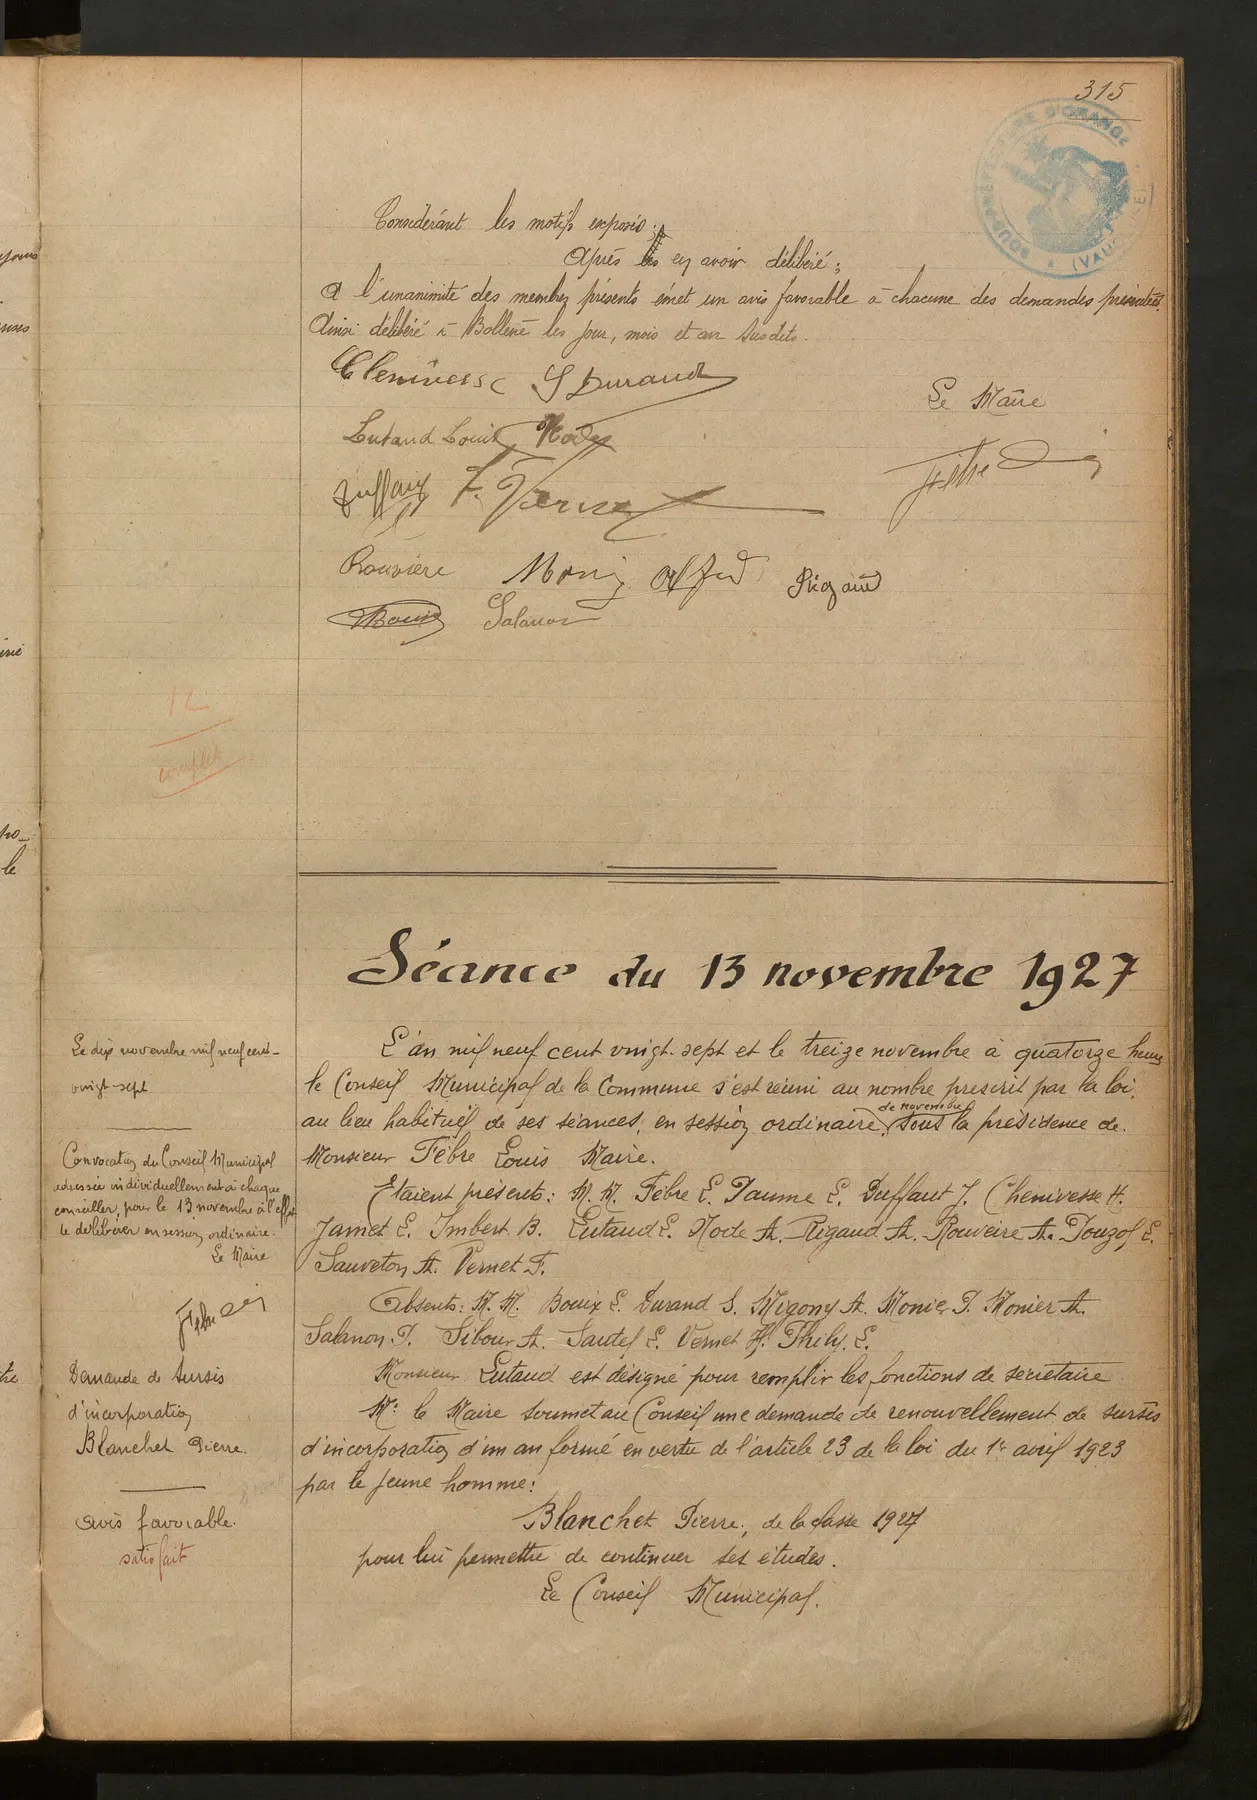 315
SOUS-PRÉFECTURE D'ORANGE
(VAUCLUSE)
Considérant les motifs exposés;
Après en avoir délibéré;
A l'unanimité des membres présents émet un avis favorable à chacune des demandes présentées.
Ainsi délibéré à Bollène les jour, mois et an susdits.
Chenivesse S Durand
Le Maire
Lutaud Louis Node
Fèbre
Duffaut F. Vernet
Rouvière Monier Alfred Rigaud
Bouix Salanon
12
complet
Séance du 13 novembre 1927
Le dix novembre mil neuf cent-
vingt-sept
Convocation du Conseil Municipal
adressée individuellement à chaque
conseiller, pour le 13 novembre à l'effet
de délibérer en session ordinaire.
Le Maire
Fèbre
Demande de sursis
d'incorporation
Blanchet Pierre.
Avis favorable.
satisfait
L'an mil neuf cent vingt-sept et le treize novembre à quatorze heures
le Conseil Municipal de la Commune s'est réuni au nombre prescrit par la loi,
au lieu habituel de ses séances, en session ordinaire de novembre sous la présidence de
Monsieur Fèbre Louis Maire.
Etaient présents: M.M. Fèbre L. Daume L. Duffaut J. Chenivesse H.
Jamet L. Imbert B. Lutaud L. Node A. Rigaud A. Rouveire A. Pouzol L.
Sauveton A. Vernet F.
Absents: M.M. Bouix L. Durand S. Migony A. Monier P. Monier A.
Salanon P. Sibour A. Sautel L. Vernet H. Thély L.
Monsieur Lutaud est désigné pour remplir les fonctions de secrétaire.
Mr le Maire soumet au Conseil une demande de renouvellement de sursis
d'incorporation d'un an formé en vertu de l'article 23 de la loi du 1er avril 1923
par le jeune homme:
Blanchet Pierre, de la classe 1927
pour lui permettre de continuer ses études.
Le Conseil Municipal.